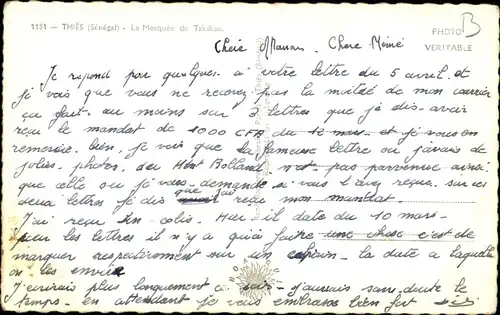 1151 — THIÈS (Sénégal) - La Mosquée de Takikao
PHOTO
B
VERITABLE
Chère Maman - Chère Mémé
Je repond par quelques à votre lettre du 5 avril et
je vois que vous ne recevez pas la moitié de mon courrier
ça fait au moins sur 3 lettres que je dis avoir
reçu le mandat de 1000 CFA du 12 mars et je vous en
remercie bien, je vois que la fameuse lettre ou j'avais de
jolies photos du Mont Rolland n'est pas parvenue ainsi
que celle ou je vous demande si vous l'avez reçue, sur ces
deux lettres je dis que j'ai reçu mon mandat.
J'ai reçu un colis. Hier il date du 10 mars
pour les lettres il n'y a qu'à faire une chose c'est de
marquer respectivement sur un la date a laquelle
on les envoie
J'ecrirais plus longuement ce soir j'aurais sans doute le
temps - en attendant je vous embrasse bien fort